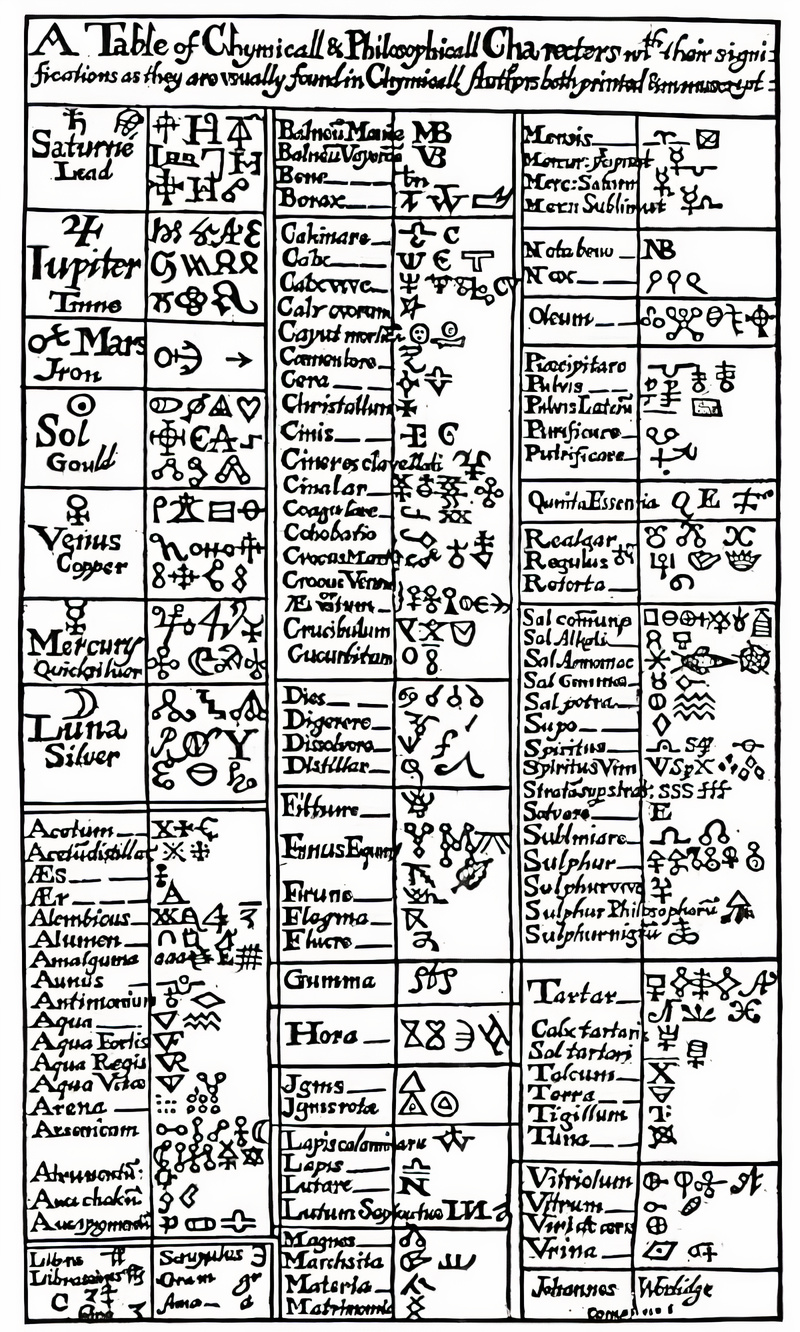 A Table of Chymicall & Philosophicall Charecters wth their signi:
fications as they are usually found in Chymicall Authors both printed & manuscript
Saturne
Lead
Iupiter
Tinne
Mars
Iron
Sol
Gould
Venus
Copper
Mercury
Quicksilver
Luna
Silver
Acetum
Acetũ distillat
Æs
Ær
Alembicus
Alumen
Amalgama
Annus
Antimonium
Aqua
Aqua Fortis
Aqua Regis
Aqua Vitæ
Arena
Arsenicum
Atramentũ:
Auripigmentũ
Libra
Scrupulus
Gran
gr
Balneũ Mariæ MB
Balneũ Vaporis VB
Bene
Borax
Calcinare C
Calx
Calx vive
Calx ovorum
Caput mortuũ
Cæmentare
Cera
Christallum
Cinis
Cineres clavellati
Cinabar
Coagulare
Cohobatio
Crocus Martis
Crocus Veneris
or
Æs ustum
Crucibulum
Cucurbitam
Dies
Digerere
Dissolvere
Distillar
Filtrare
Fimus Equin
Flegma
Fluere
Gumma
Hora
Ignis
Ignis rotæ
Lapis calaminaris
Lapis
Lutare
Lutum Sapientiæ
Magnes
Marchsita
Materia
Matrimonia
Mensis
Mercur: præcipit
Merc: Saturn
Merc: Sublimat
Nota bene NB
Nox
Oleum
Præcipitare
Pulvis
Pulvis Laterũ
Purificare
Putrificare
Quinta Essentia Q E
Realgar
Regulus
Retorta
Sal com̃une
Sal Alkali
Sal Armoniac
Sal Gemmæ
Sal petræ
Sapo
Spiritus
Spiritus Vini
Strata sup strat: SSS
Solvere E
Sublimare
Sulphur
Sulphur vive
Sulphur Philosophorũ
Sulphur nigrũ
Tartar
Calx tartari
Sal tartari
Talcum
Terra
Tigillum
Tutia
Vitriolum
Vitrum
Viride æris
Vrina
Johannes Worlidge